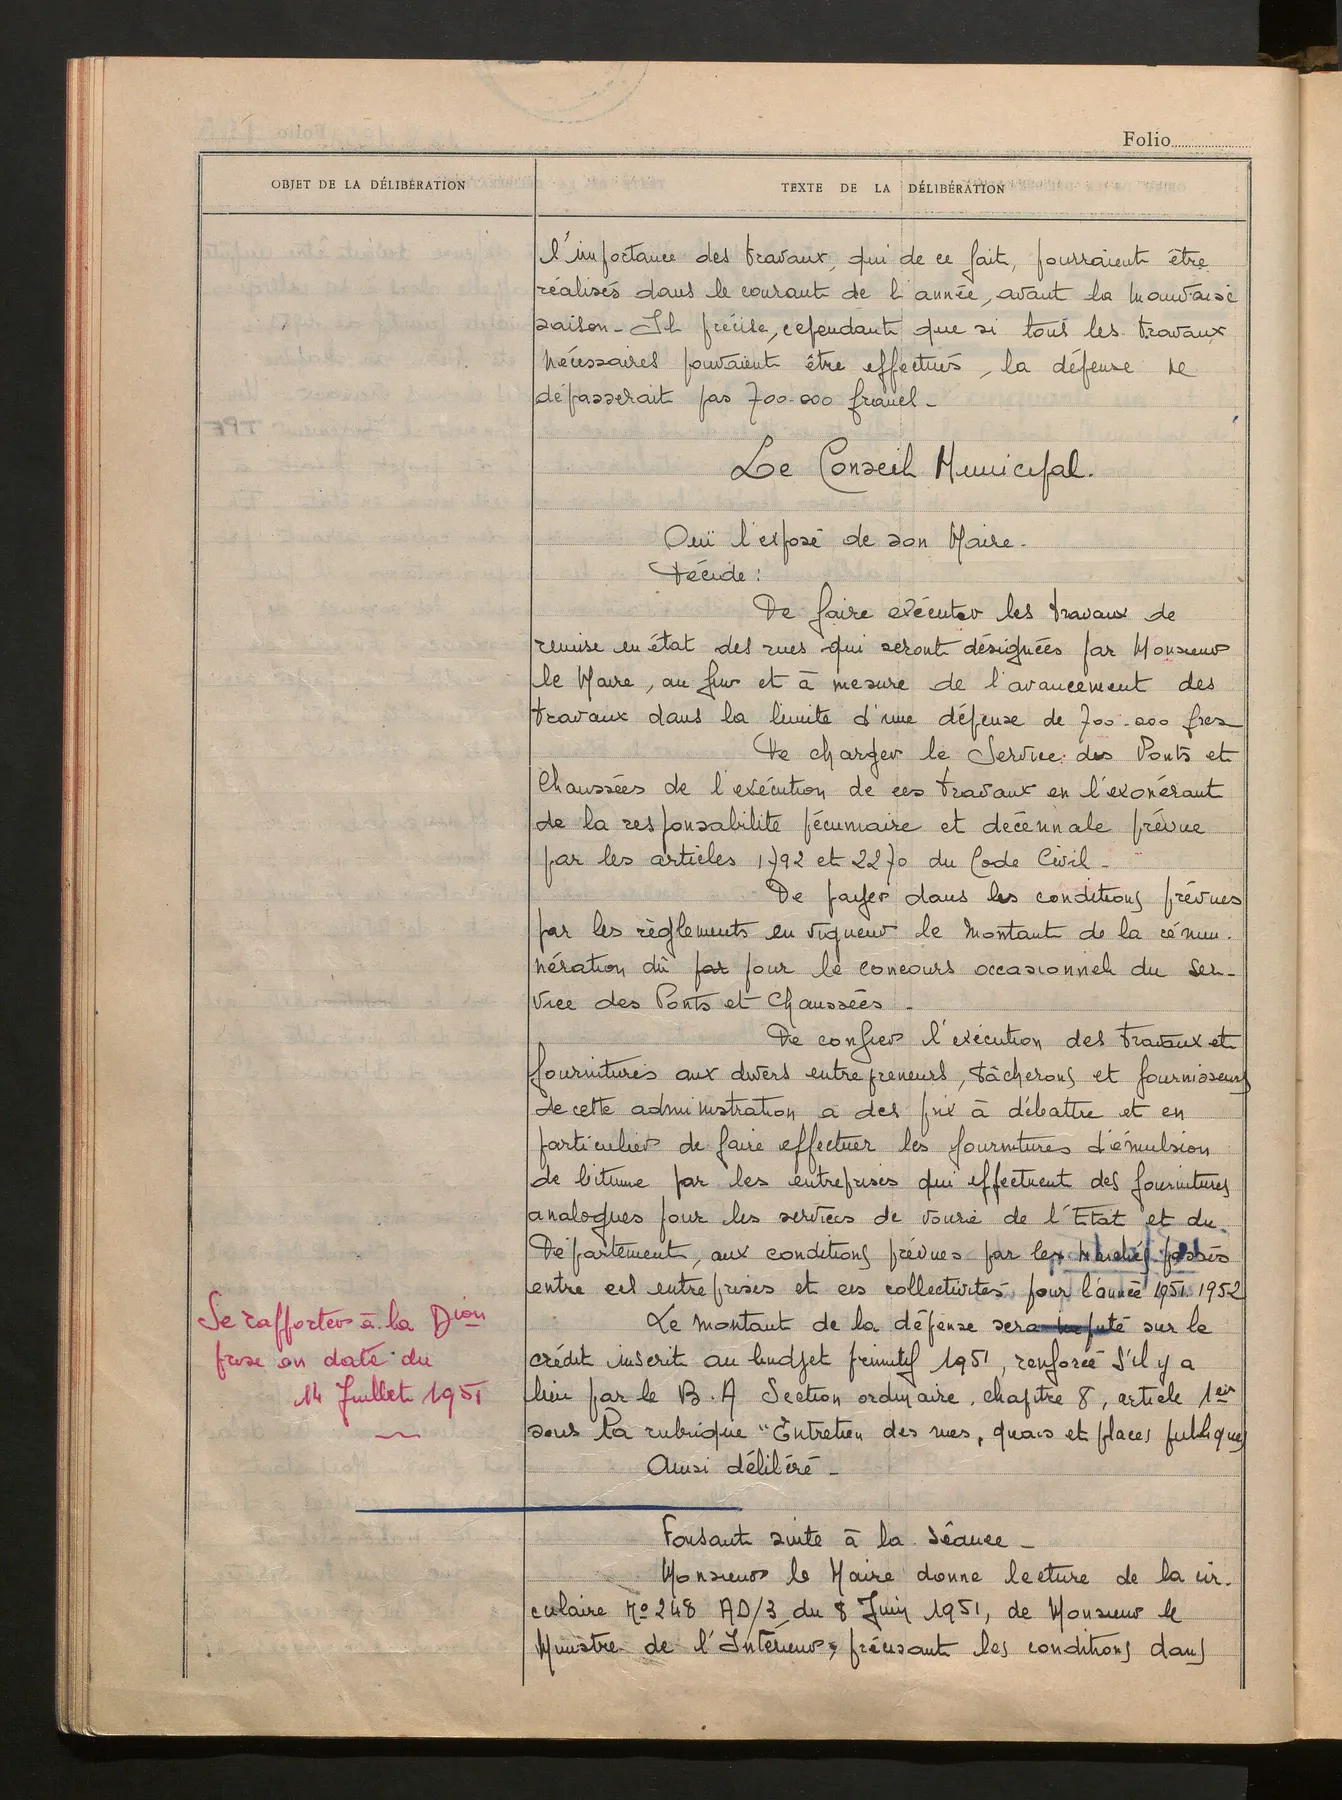 Folio
OBJET DE LA DÉLIBÉRATION
TEXTE DE LA DÉLIBÉRATION
l'importance des travaux, qui de ce fait, pourraient être
réalisés dans le courant de l'année, avant la mauvaise
saison - Il précise, cependant que si tous les travaux
nécessaires pouvaient être effectués, la dépense ne
dépasserait pas 700.000 francs -
Le Conseil Municipal.
Ouï l'exposé de son Maire -
Décide :
De faire exécuter les travaux de
remise en état des rues qui seront désignées par Monsieur
le Maire, au fur et à mesure de l'avancement des
travaux dans la limite d'une dépense de 700.000 frcs
De charger le Service des Ponts et
Chaussées de l'exécution de ces travaux en l'exonérant
de la responsabilité pécuniaire et décennale prévue
par les articles 1792 et 2270 du Code Civil -
De payer dans les conditions prévues
par les règlements en vigueur le montant de la rému-
nération dû par pour le concours occasionnel du Ser-
vice des Ponts et Chaussées -
De confier l'exécution des travaux et
fournitures aux divers entrepreneurs, tâcherons et fournisseurs
de cette administration a des prix à débattre et en
particulier de faire effectuer les fournitures d'émulsion
de bitume par les entreprises qui effectuent des fournitures
analogues pour les services de voirie de l'Etat et du
Département, aux conditions prévues par les marchés passés
entre ces entreprises et ces collectivités pour l'année 1951.1952
Le montant de la dépense sera imputé sur le
crédit inscrit au budget primitif 1951, renforcé s'il y a
lieu par le B.A Section ordinaire, chapitre 8, article 1er
sous la rubrique "Entretien des rues, quais et places publiques
Ainsi délibéré -
Se rapporter à la Dion
prise en date du
14 Juillet 1951
Faisant suite à la séance -
Monsieur le Maire donne lecture de la cir-
culaire No 248 AD/3 du 8 Juin 1951, de Monsieur le
Ministre de l'Intérieur, précisant les conditions dans